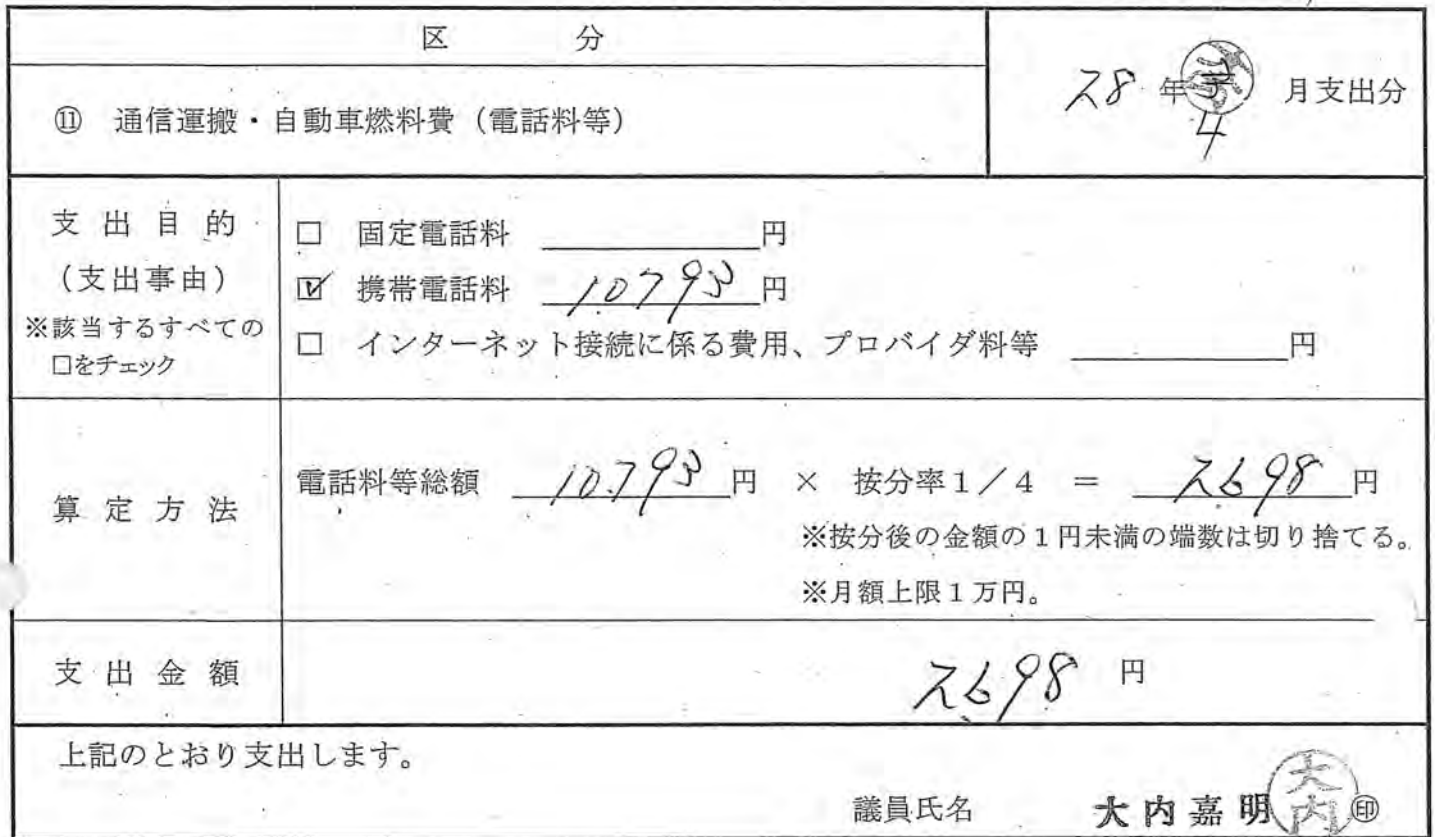 区　　分
28 年 4 月支出分
⑪　通信運搬・自動車燃料費（電話料等）
支出目的
（支出事由）
※該当するすべての
□をチェック
□　固定電話料　　　　　円
☑　携帯電話料　10793　円
□　インターネット接続に係る費用、プロバイダ料等　　　　　円
算定方法
電話料等総額　10.793　円　×　按分率１／４　＝　2698　円
※按分後の金額の１円未満の端数は切り捨てる。
※月額上限１万円。
支出金額
2698　円
上記のとおり支出します。
議員氏名　大内嘉明　大内　㊞